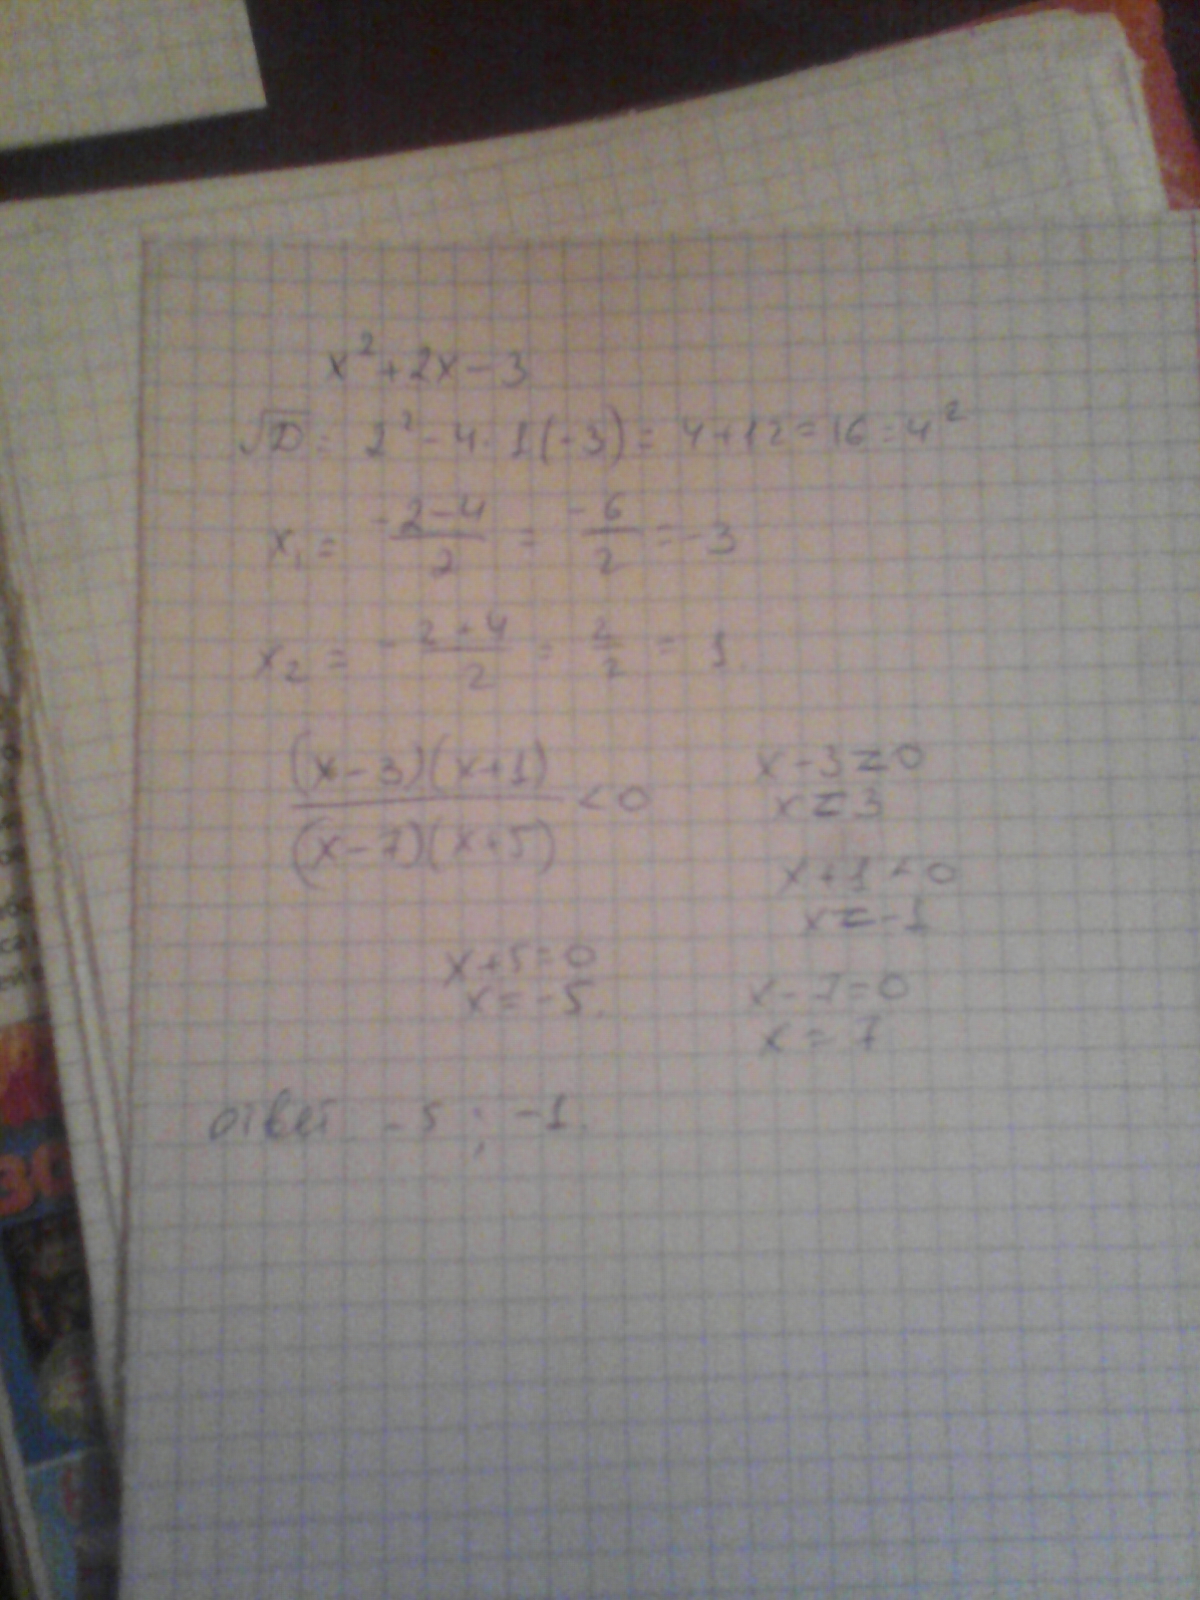 x² + 2x - 3
√D = 2² - 4 · 1(-3) = 4 + 12 = 16 = 4²
x₁ = (-2-4)/2 = -6/2 = -3
x₂ = (-2+4)/2 = 2/2 = 1.
(x-3)(x+1)/(x-7)(x+5) < 0
x - 3 = 0
x = 3
x + 1 = 0
x = -1
x + 5 = 0
x = -5.
x - 7 = 0
x = 7
ответ -5 ; -1.